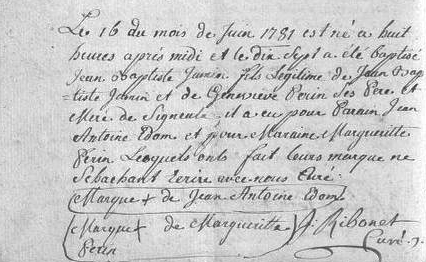 Le 16 du mois de Juin 1781 est né a huit
heures aprés midi et le dix Sept a été baptisé
Jean Baptiste Jamin fils légitime de Jean Bap
=tiste Jamin et de Genevieve Perin Ses Pere et
Mere de Signeulx, il a eu pour Parain Jean
Antoine Edom et pour Maraine Margueritte
Perin Lesquels onts fait leurs marque ne
Sebachant Ecrire avec nous Curé.
Marque + de Jean Antoine Edom
Marque + de Margueritte J. Ribonet
Perin Curé